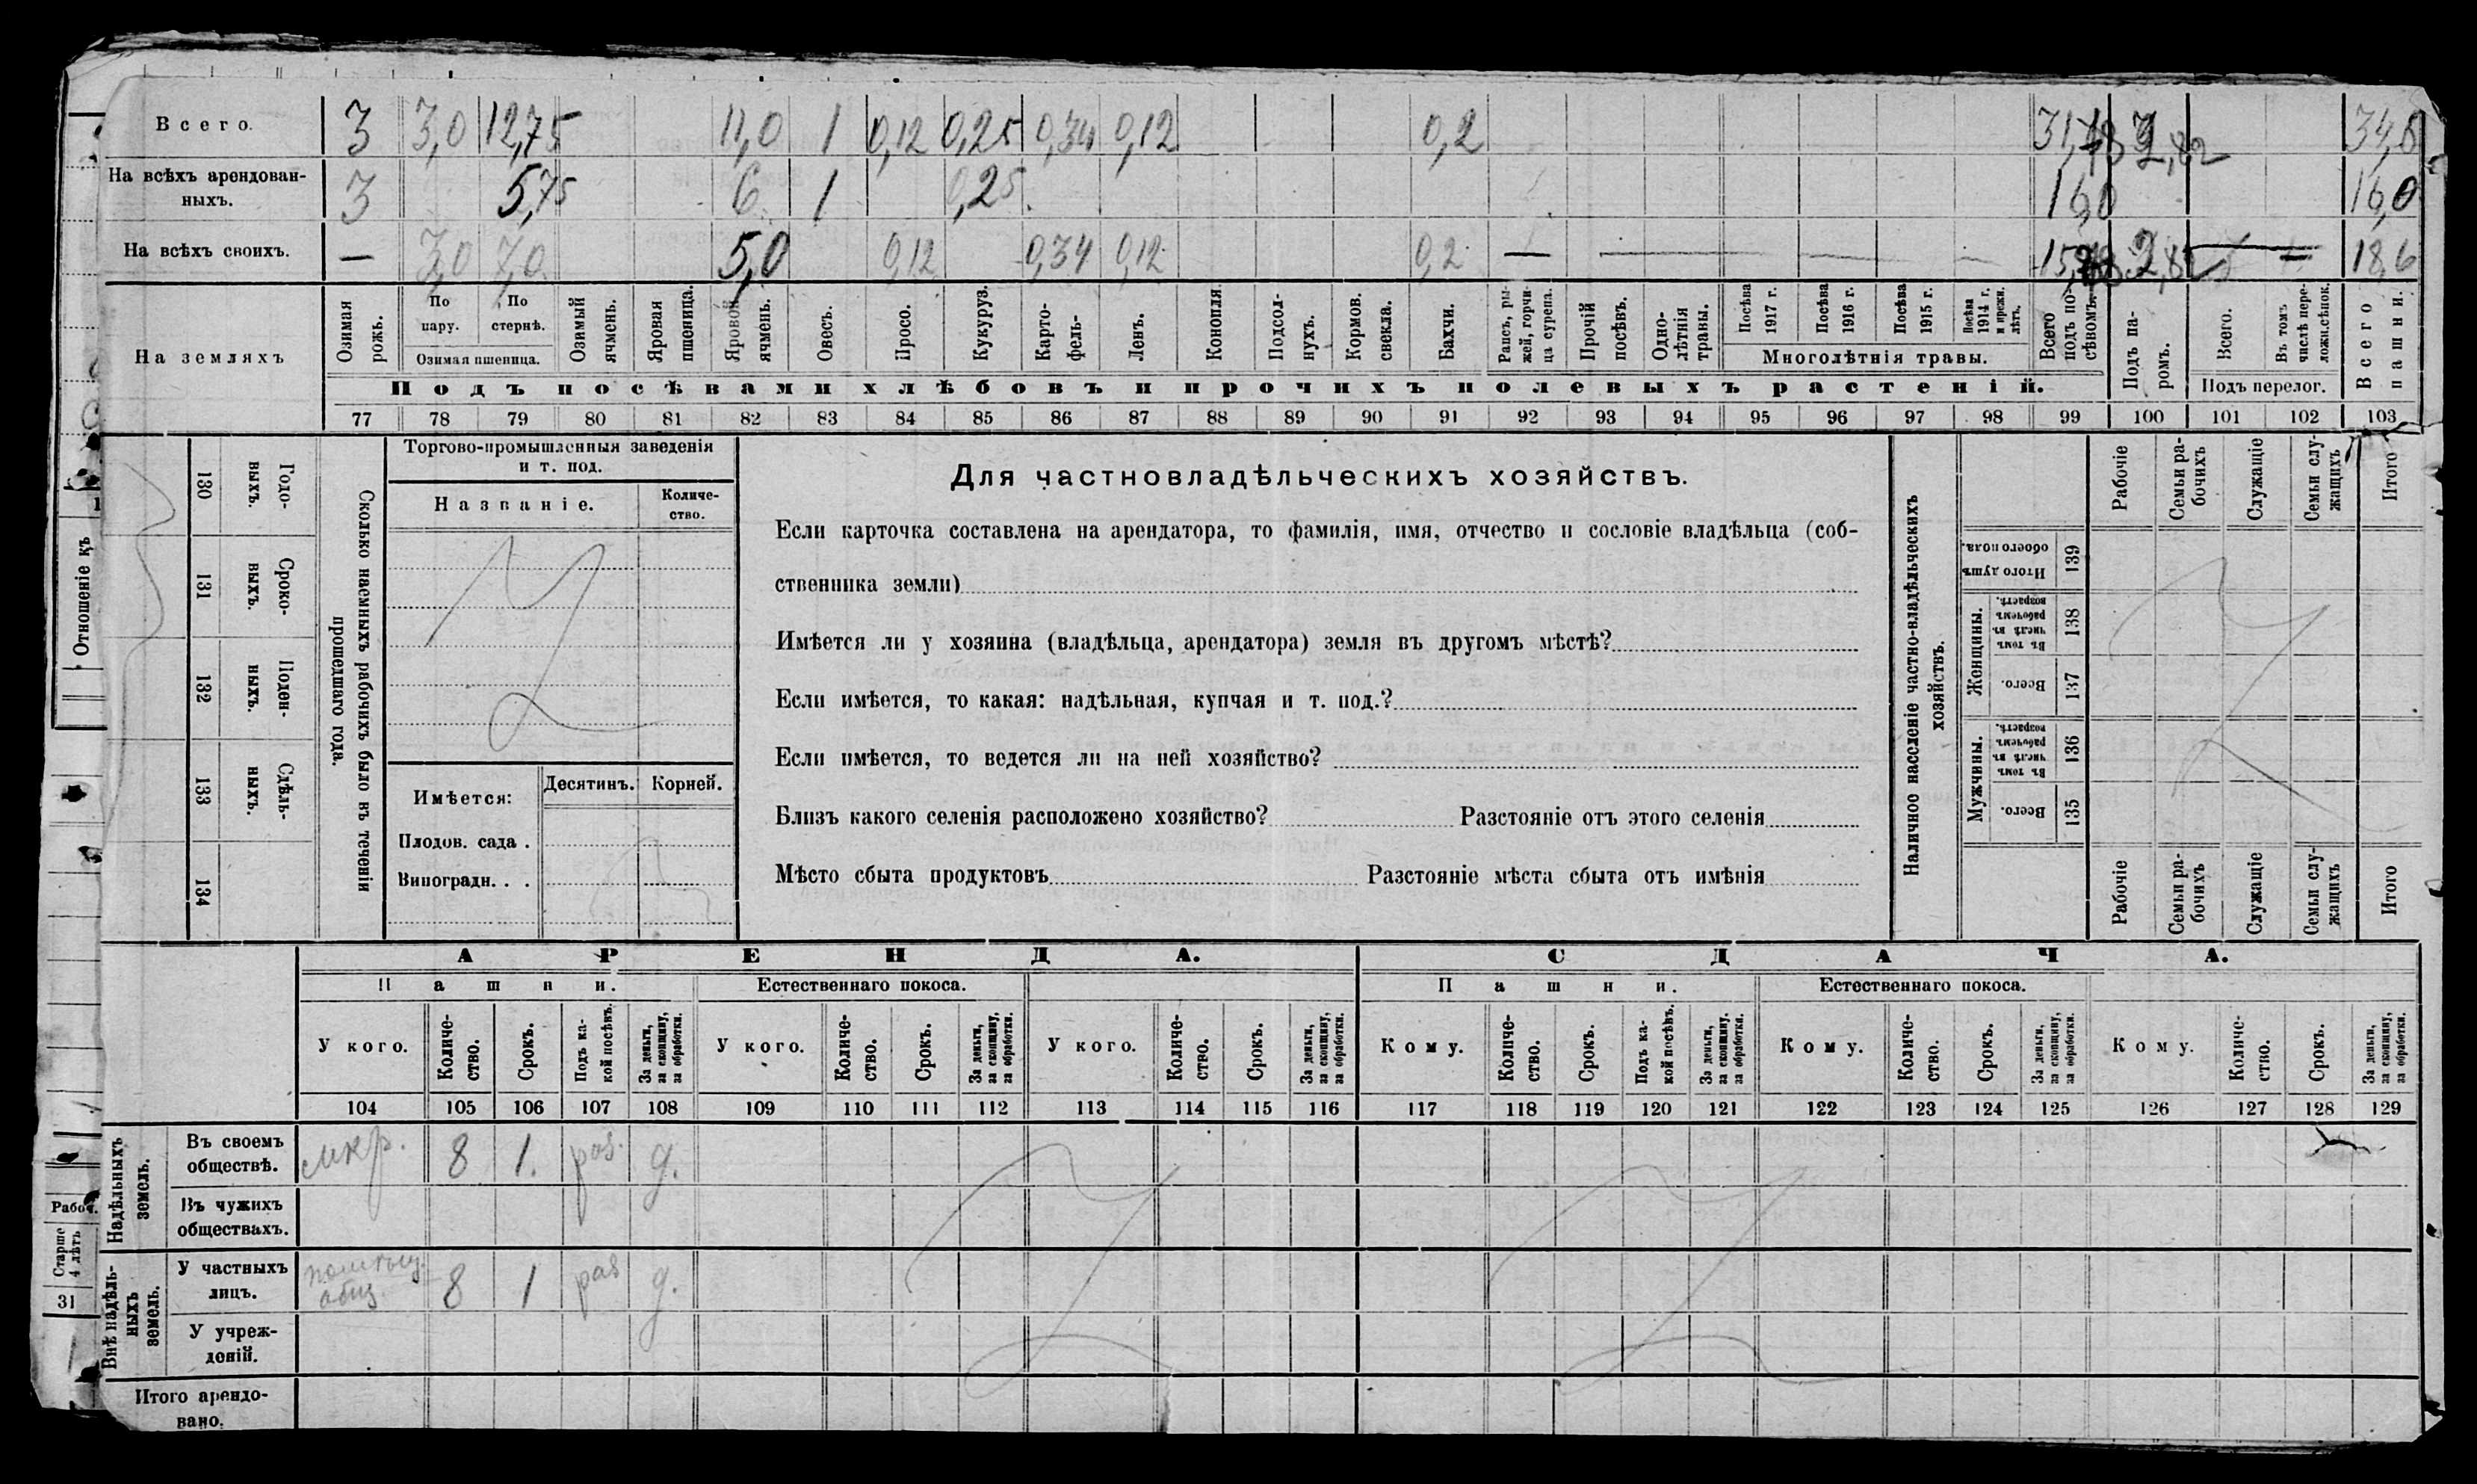 Всего. 3 3,0 12,75 11,0 1 0,12 0,25 0,34 0,12 0,2 34,6
На всѣхъ арендован-
ныхъ. 3 5,75 6 1 0,25 16,0 16,0
На всѣхъ своихъ. — 3,0 7,0 5,0 0,12 0,34 0,12 0,2 — — — — 18,6
На земляхъ
Озимая рожь.
По пару.
По стернѣ.
Озимая пшеница.
Озимый ячмень.
Яровая пшеница.
Яровой ячмень.
Овесъ.
Просо.
Кукуруз.
Карто-
фель-
Ленъ.
Конопля
Подсол-
нухъ.
Кормов.
свекла.
Бахчи.
Рапсъ, ры-
жей, горчи-
ца сурепа.
Прочій
посѣвъ.
Одно-
лѣтнія
травы.
Посѣва
1917 г.
Посѣва
1916 г.
Посѣва
1915 г.
Посѣва
1914 г.
и прежн.
лѣтъ.
Многолѣтнія травы.
Всего
подъ по-
сѣвомъ.
Подъ па-
ромъ.
Всего.
Въ томъ
числѣ пере-
ложн.сѣнок.
Подъ перелог.
Всего
пашни.
Подъ посѣвами хлѣбовъ и прочихъ полевыхъ растеній.
77 78 79 80 81 82 83 84 85 86 87 88 89 90 91 92 93 94 95 96 97 98 99 100 101 102 103
Отношеніе къ
130 Годо-
выхъ.
131 Сроко-
ныхъ.
132 Поден-
ныхъ.
133 Сдѣль-
ныхъ.
134
Сколько наемныхъ рабочихъ было въ теченіи
прошедшаго года.
Торгово-промышленныя заведенія
и т. под.
Названіе.
Количе-
ство.
Имѣется: Десятинъ. Корней.
Плодов. сада .
Виноградн. . .
Для частновладѣльческихъ хозяйствъ.
Если карточка составлена на арендатора, то фамилія, имя, отчество и сословіе владѣльца (соб-
ственника земли)
Имѣется ли у хозяина (владѣльца, арендатора) земля въ другомъ мѣстѣ?
Если имѣется, то какая: надѣльная, купчая и т. под.?
Если имѣется, то ведется ли на ней хозяйство?
Близъ какого селенія расположено хозяйство? Разстояніе отъ этого селенія
Мѣсто сбыта продуктовъ Разстояніе мѣста сбыта отъ имѣнія
Наличное населеніе частно-владѣльческихъ
хозяйствъ.
Рабочіе
Семьи ра-
бочихъ
Служащіе
Семьи слу-
жащихъ
Итого
Итого душъ
обоего пола.
139
Женщины.
Въ томъ
числѣ въ
рабочемъ
возрастѣ.
138
Всего.
137
Мужчины.
Въ томъ
числѣ въ
рабочемъ
возрастѣ.
136
Всего.
135
Рабочіе
Семьи ра-
бочихъ
Служащіе
Семьи слу-
жащихъ
Итого
АРЕНДА. СДАЧА.
Пашни. Естественнаго покоса. Пашни. Естественнаго покоса.
У кого.
Количе-
ство.
Срокъ.
Подъ ка-
кой посѣвъ.
За деньги,
за скопщину,
за обработки.
У кого.
Количе-
ство.
Срокъ.
За деньги,
за скопщину,
за обработки.
У кого.
Количе-
ство.
Срокъ.
За деньги,
за скопщину,
за обработки.
Кому.
Количе-
ство.
Срокъ.
Подъ ка-
кой посѣвъ.
За деньги,
за скопщину,
за обработки.
Кому.
Количе-
ство.
Срокъ.
За деньги,
за скопщину,
за обработки.
Кому.
Количе-
ство.
Срокъ.
За деньги,
за скопщину,
за обработки.
104 105 106 107 108 109 110 111 112 113 114 115 116 117 118 119 120 121 122 123 124 125 126 127 128 129
Надѣльныхъ
земель.
Въ своемъ
обществѣ. 8 1. раз. д.
Въ чужихъ
обществахъ.
Внѣ надѣль-
ныхъ
земель.
У частныхъ
лицъ. общ. 8 1 раз д.
У учреж-
деній.
Итого арендо-
вано.
Рабоч.
Старше
4 лѣтъ
31